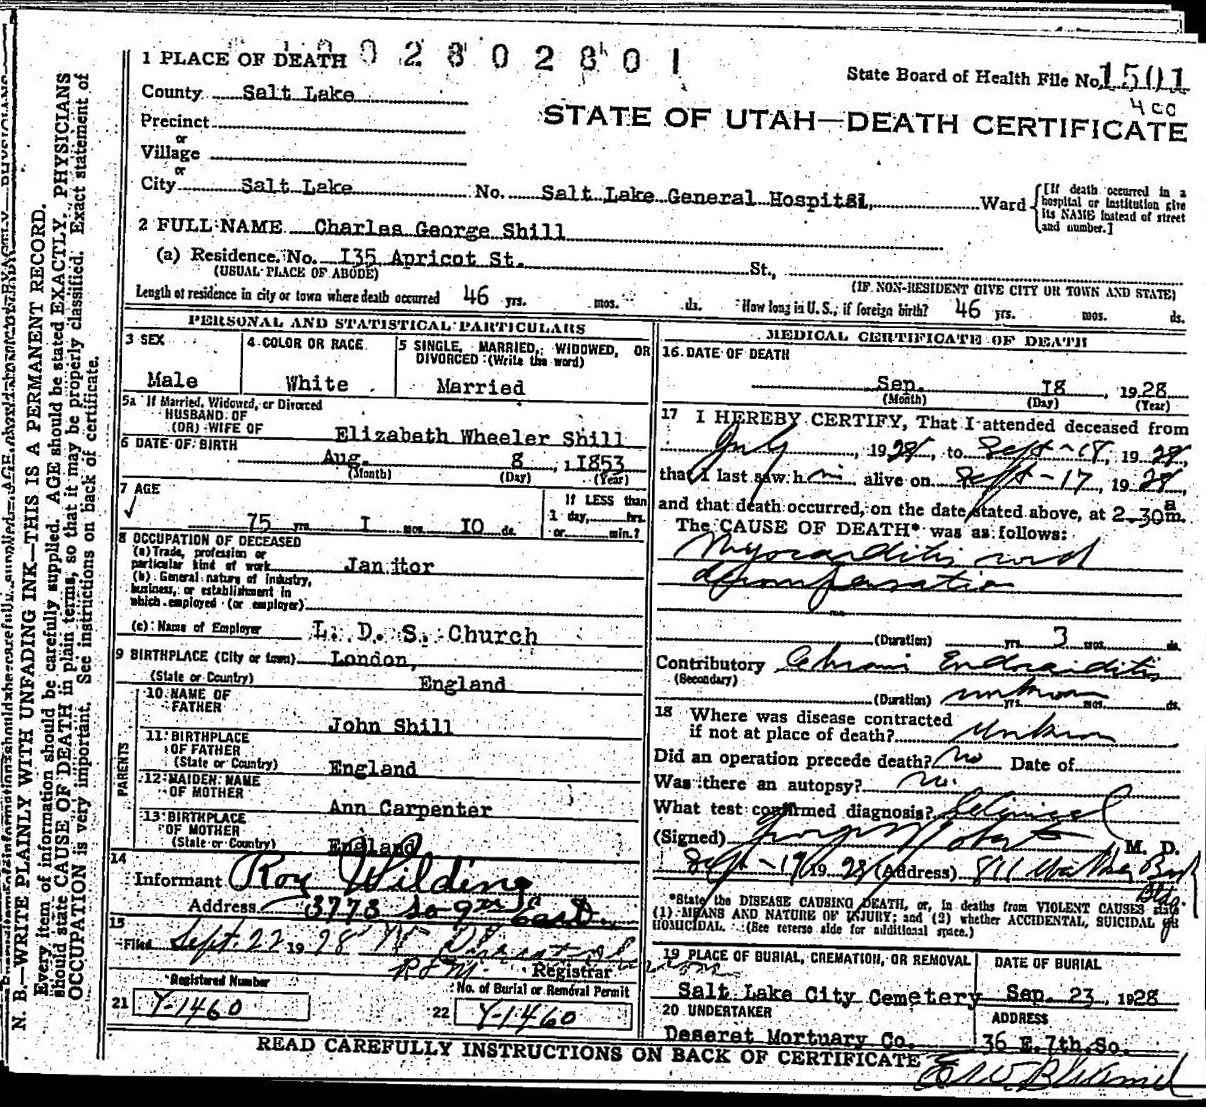 N. B.—WRITE PLAINLY WITH UNFADING INK—THIS IS A PERMANENT RECORD.
Every item of information should be carefully supplied. AGE should be stated EXACTLY. PHYSICIANS
should state CAUSE OF DEATH in plain terms, so that it may be properly classified. Exact statement of
OCCUPATION is very important. See instructions on back of certificate.
1 PLACE OF DEATH
0 2 8 0 2 8 0 1
State Board of Health File No. 1501
400
County Salt Lake
STATE OF UTAH—DEATH CERTIFICATE
Precinct
or
Village
or
City Salt Lake No. Salt Lake General Hospital, Ward
[If death occurred in a
hospital or institution give
its NAME instead of street
and number.]
2 FULL NAME Charles George Shill
(a) Residence. No. I35 Apricot St. St.,
(USUAL PLACE OF ABODE) (IF NON-RESIDENT GIVE CITY OR TOWN AND STATE)
Length of residence in city or town where death occurred 46 yrs. mos. ds. How long in U. S., if foreign birth? 46 yrs. mos. ds.
PERSONAL AND STATISTICAL PARTICULARS
3 SEX
Male
4 COLOR OR RACE
White
5 SINGLE, MARRIED, WIDOWED, OR
DIVORCED (Write the word)
Married
5a If Married, Widowed, or Divorced
HUSBAND OF
(OR) WIFE OF Elizabeth Wheeler Shill
6 DATE OF BIRTH
Aug. 8, 1853
(Month) (Day) (Year)
7 AGE
75 yrs. I mos. IO ds.
If LESS than
1 day, hrs.
or min.?
8 OCCUPATION OF DECEASED
(a) Trade, profession or
particular kind of work Janitor
(b) General nature of industry,
business, or establishment in
which employed (or employer)
(c) Name of Employer L. D. S. Church
9 BIRTHPLACE (City or town) London,
(State or Country) England
PARENTS
10 NAME OF
FATHER
John Shill
11 BIRTHPLACE
OF FATHER
(State or Country) England
12 MAIDEN NAME
OF MOTHER
Ann Carpenter
13 BIRTHPLACE
OF MOTHER
(State or Country) England
14
Informant Roy Wilding
Address 3773 So 9th East
15
Filed Sept. 22 1928
Registrar
Registered Number
21 Y-1460
No. of Burial or Removal Permit
22 Y-1460
MEDICAL CERTIFICATE OF DEATH
16 DATE OF DEATH
Sep. I8, 1928
(Month) (Day) (Year)
17 I HEREBY CERTIFY, That I attended deceased from
July, 1928, to Sept-18, 1928,
that I last saw him alive on Sept-17, 1928,
and that death occurred, on the date stated above, at 2-30 a m.
The CAUSE OF DEATH* was as follows:
Myocarditis and
decompensation
(Duration) yrs. 3 mos. ds.
Contributory Chronic Endocarditis
(Secondary)
(Duration) unknown yrs. mos. ds.
18 Where was disease contracted
if not at place of death? Unknown
Did an operation precede death? No Date of
Was there an autopsy? no.
What test confirmed diagnosis? Clinical
(Signed) M. D.
Sept-19 1928 (Address) 811 Walker Bank
Bldg.
*State the DISEASE CAUSING DEATH, or, in deaths from VIOLENT CAUSES state
(1) MEANS AND NATURE OF INJURY; and (2) whether ACCIDENTAL, SUICIDAL or
HOMICIDAL. (See reverse side for additional space.)
19 PLACE OF BURIAL, CREMATION, OR REMOVAL
Salt Lake City Cemetery
DATE OF BURIAL
Sep. 23, 1928
20 UNDERTAKER
Deseret Mortuary Co.
ADDRESS
36 E. 7th. So.
READ CAREFULLY INSTRUCTIONS ON BACK OF CERTIFICATE